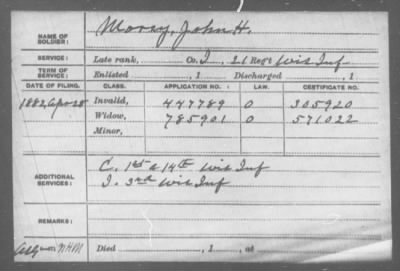 NAME OF SOLDIER: Morey, John H.
SERVICE: Late rank, Co. I, 21 Reg't Wis Inf
TERM OF SERVICE: Enlisted , 1 Discharged , 1
DATE OF FILING. CLASS. APPLICATION NO. LAW. CERTIFICATE NO.
1882, Apr 28 Invalid, 447789 O 305920
Widow, 785901 O 571022
Minor,
ADDITIONAL SERVICES: C. 1st & 14th Wis Inf
I. 3rd Wis Inf
REMARKS:
Died , 1 , at